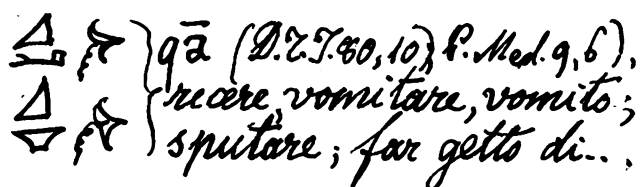 qā (D.T.I. 80,10; P. Med. 9,6),
recere, vomitare, vomito;
sputare; far getto di...